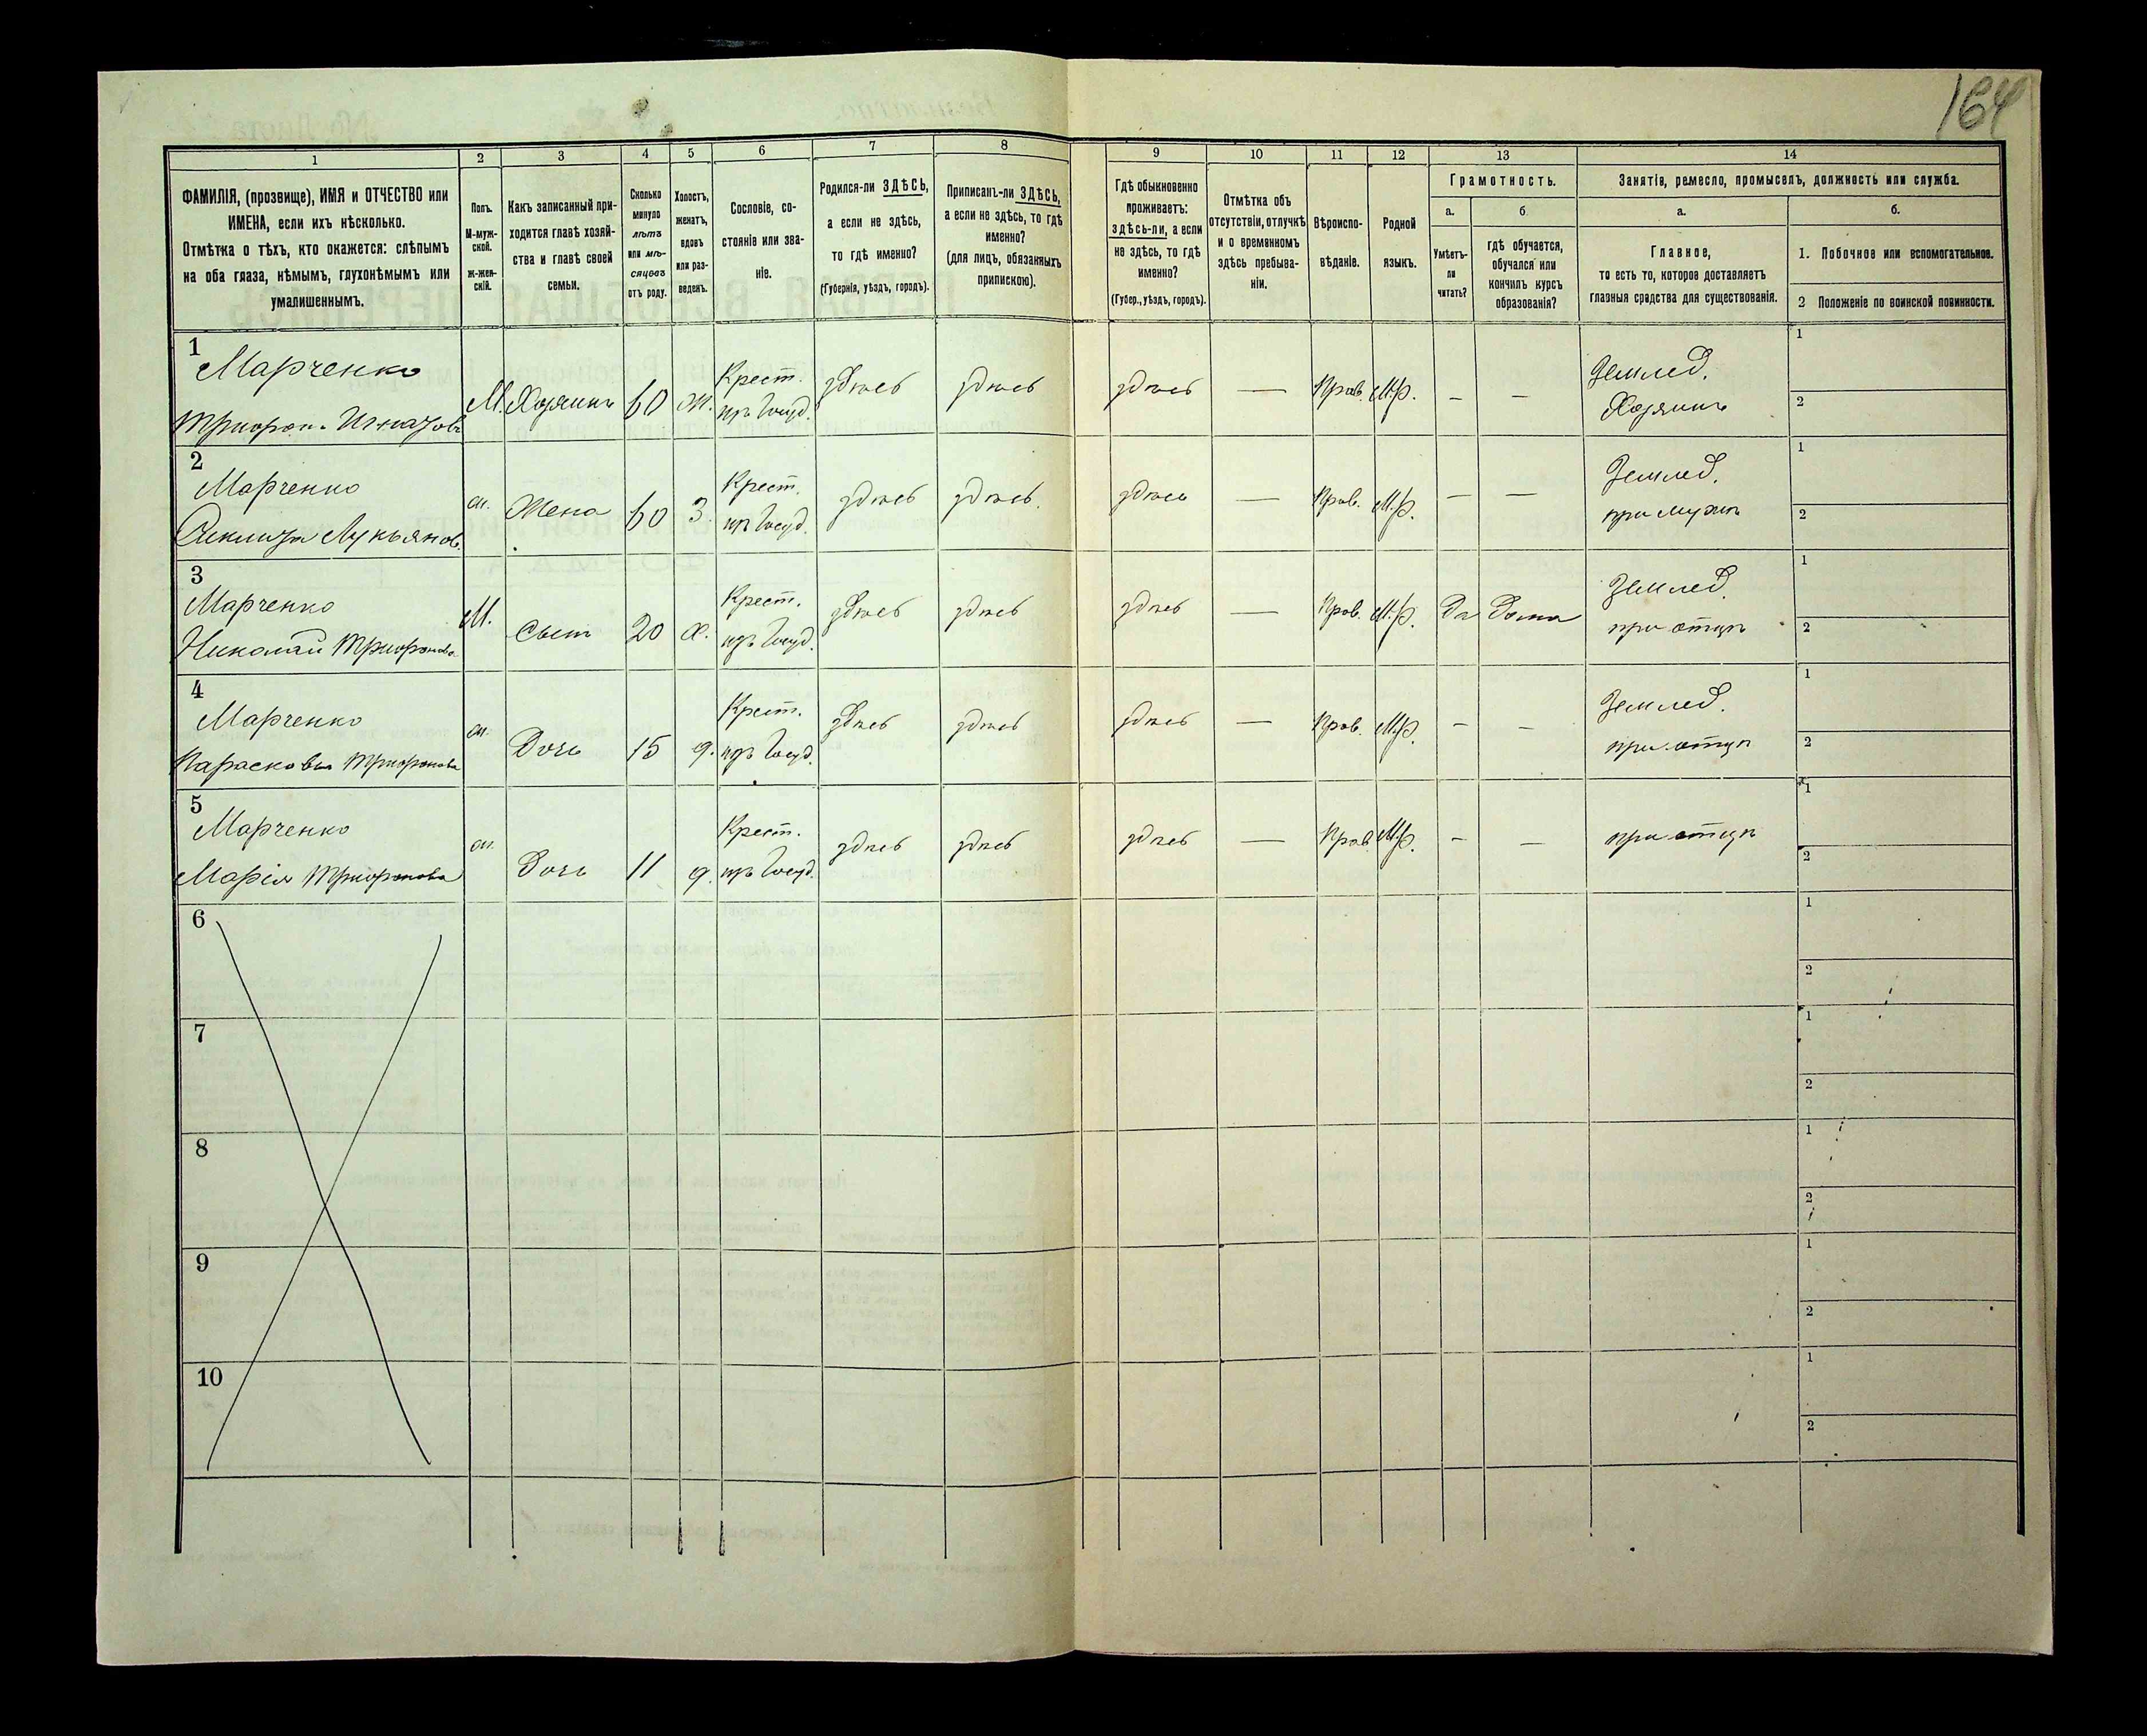 164
1 2 3 4 5 6 7 8 9 10 11 12 13 14
ФАМИЛІЯ, (прозвище), ИМЯ и ОТЧЕСТВО или
ИМЕНА, если ихъ нѣсколько.
Отмѣтка о тѣхъ, кто окажется: слѣпымъ
на оба глаза, нѣмымъ, глухонѣмымъ или
умалишеннымъ.
Полъ.
М-муж-
ской.
Ж-жен-
скій.
Какъ записанный при-
ходится главѣ хозяй-
ства и главѣ своей
семьи.
Сколько
минуло
лѣтъ
или мѣ-
сяцевъ
отъ роду.
Холостъ,
женатъ,
вдовъ
или раз-
веденъ.
Сословіе, со-
стояніе или зва-
ніе.
Родился-ли ЗДѢСЬ,
а если не здѣсь,
то гдѣ именно?
(Губернія, уѣздъ, городъ).
Приписанъ-ли ЗДѢСЬ,
а если не здѣсь, то гдѣ
именно?
(для лицъ, обязанныхъ
припискою).
Гдѣ обыкновенно
проживаетъ:
здѣсь-ли, а если
не здѣсь, то гдѣ
именно?
(Губер., уѣздъ, городъ).
Отмѣтка объ
отсутствіи, отлучкѣ
и о временномъ
здѣсь пребыва-
ніи.
Вѣроиспо-
вѣданіе.
Родной
языкъ.
Грамотность.
а.
Умѣетъ-
ли
читать?
б
гдѣ обучается,
обучался или
кончилъ курсъ
образованія?
Занятіе, ремесло, промыселъ, должность или служба.
а.
Главное,
то есть то, которое доставляетъ
главныя средства для существованія.
б.
1. Побочное или вспомогательное.
2 Положеніе по воинской повинности.
1
Марченко
Трифон. Игнатов
М. Хозяинъ 60 ж. Крест. здѣсь здѣсь здѣсь — Прав. М.р. - - Землед. 1
изъ Госуд. Хозяинъ 2
2
Марченко
Лукьянов.
ж. Жена 60 З Крест. здѣсь здѣсь здѣсь — Прав. М.р. — — Землед. 1
изъ Госуд. при мужѣ 2
3
Марченко
Николай Трифонов
М. Сынъ 20 х. Крест. здѣсь здѣсь здѣсь — Прав. М.р. Да Дома Землед. 1
изъ Госуд. при отцѣ 2
4
Марченко
Парасковья Трифонова
ж. Дочь 15 д. Крест. здѣсь здѣсь здѣсь — Прав. М.р. - - Землед. 1
изъ Госуд. при отцѣ 2
5
Марченко
Марія Трифонова
ж. Дочь 11 д. Крест. здѣсь здѣсь здѣсь — Прав. М.р. - — при отцѣ 1
изъ Госуд. 2
6 1
2
7 1
2
8 1
2
9 1
2
10 1
2